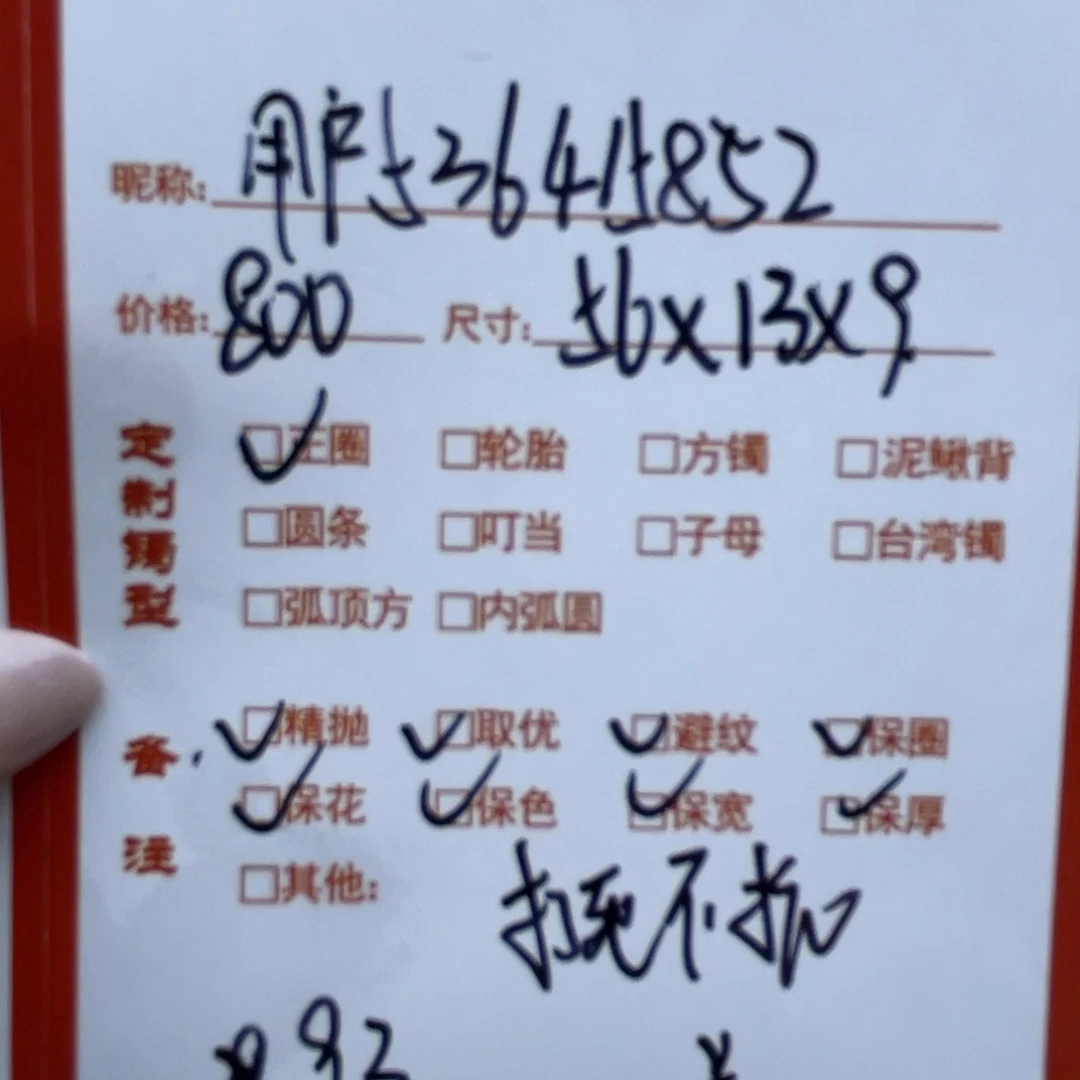 昵称: 用户536415852
价格: 800 尺寸: 56x13x9
定制镯型
正圈 轮胎 方镯 泥鳅背
圆条 叮当 子母 台湾镯
弧顶方 内弧圆
备注
精抛 取优 避纹 保圈
保花 保色 保宽 保厚
其他: 打死不抛